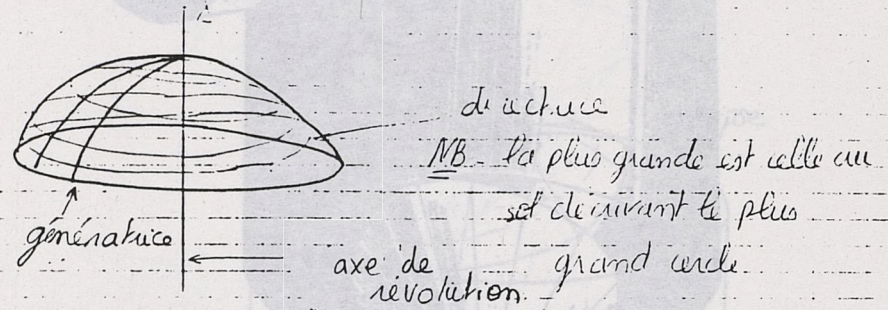 directrice
NB - la plus grande est celle au
sol décrivant le plus
grand cercle.
génératrice
axe de
révolution.